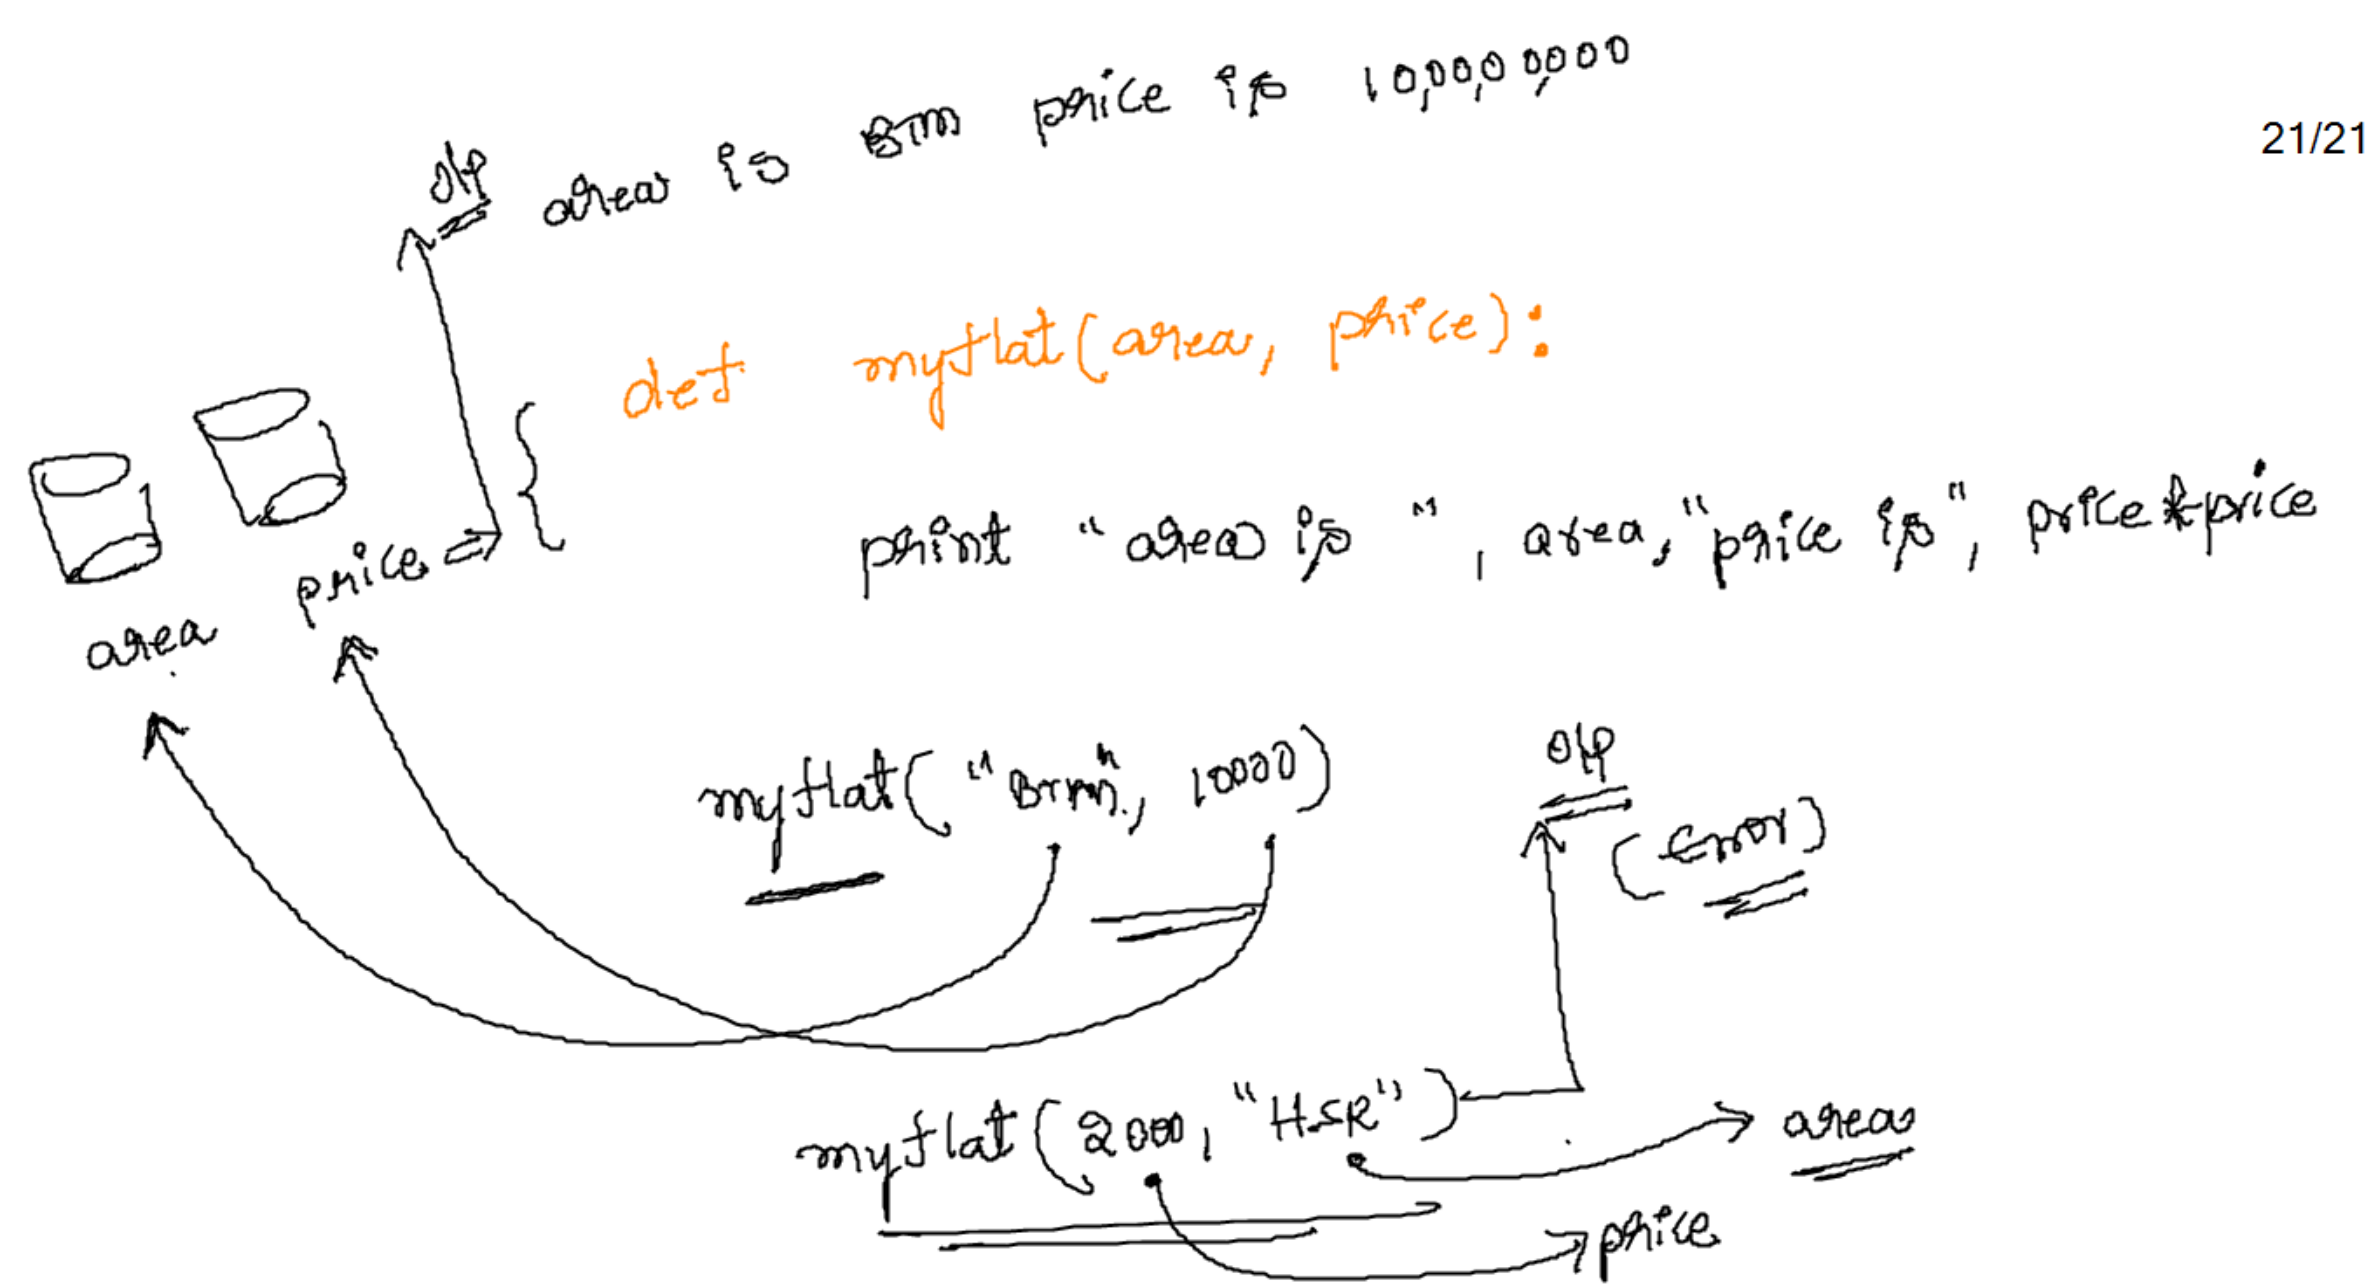 o/p area is BTM price is 10,00,00,000
21/21
def myflat(area, price):
print "area is ", area, "price is", price*price
price
area
myflat("BTM", 10000)
o/p
(Error)
myflat(2000, "HSR")
area
price